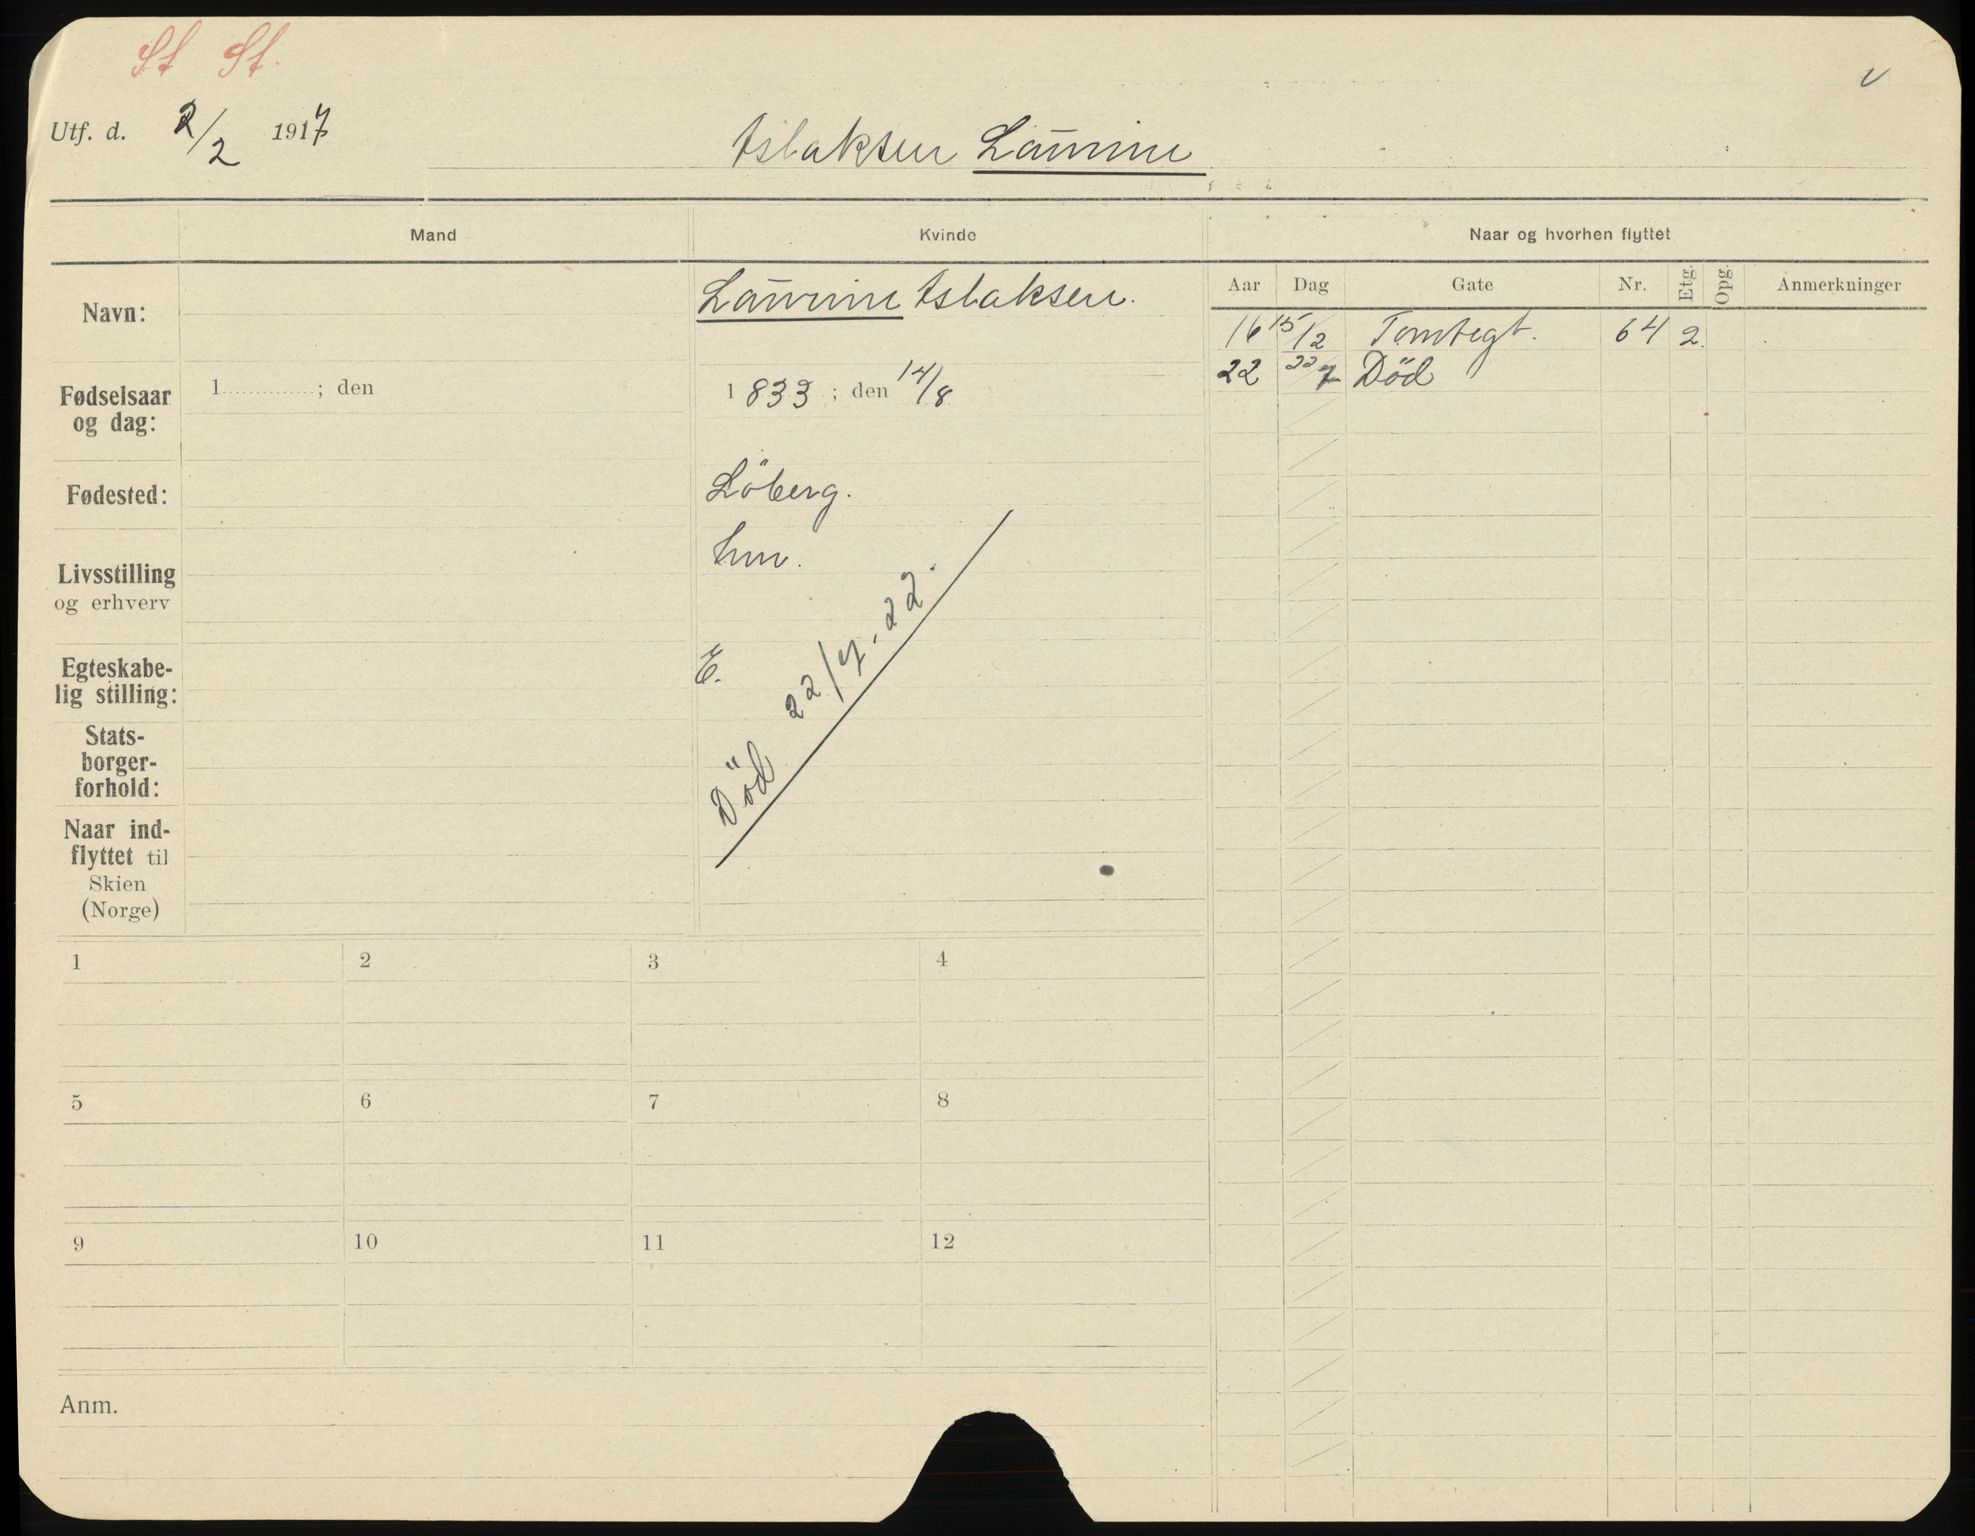 St St.
Utf. d. 2/2 1917
Aslaksen Laurine
Mand
Kvinde
Naar og hvorhen flyttet
Aar
Dag
Gate
Nr.
Etg.
Opg.
Anmerkninger
Navn:
Laurine Aslaksen.
16 15/12 Tomtegt. 64 2.
22 22/7 Död
Fødselsaar
og dag:
1 ; den
1833 ; den 14/8
Fødested:
Löberg.
Livsstilling
og erhverv
Egteskabe-
lig stilling:
E.
Död 22/7-22.
Stats-
borger-
forhold:
Naar ind-
flyttet til
Skien
(Norge)
1
2
3
4
5
6
7
8
9
10
11
12
Anm.